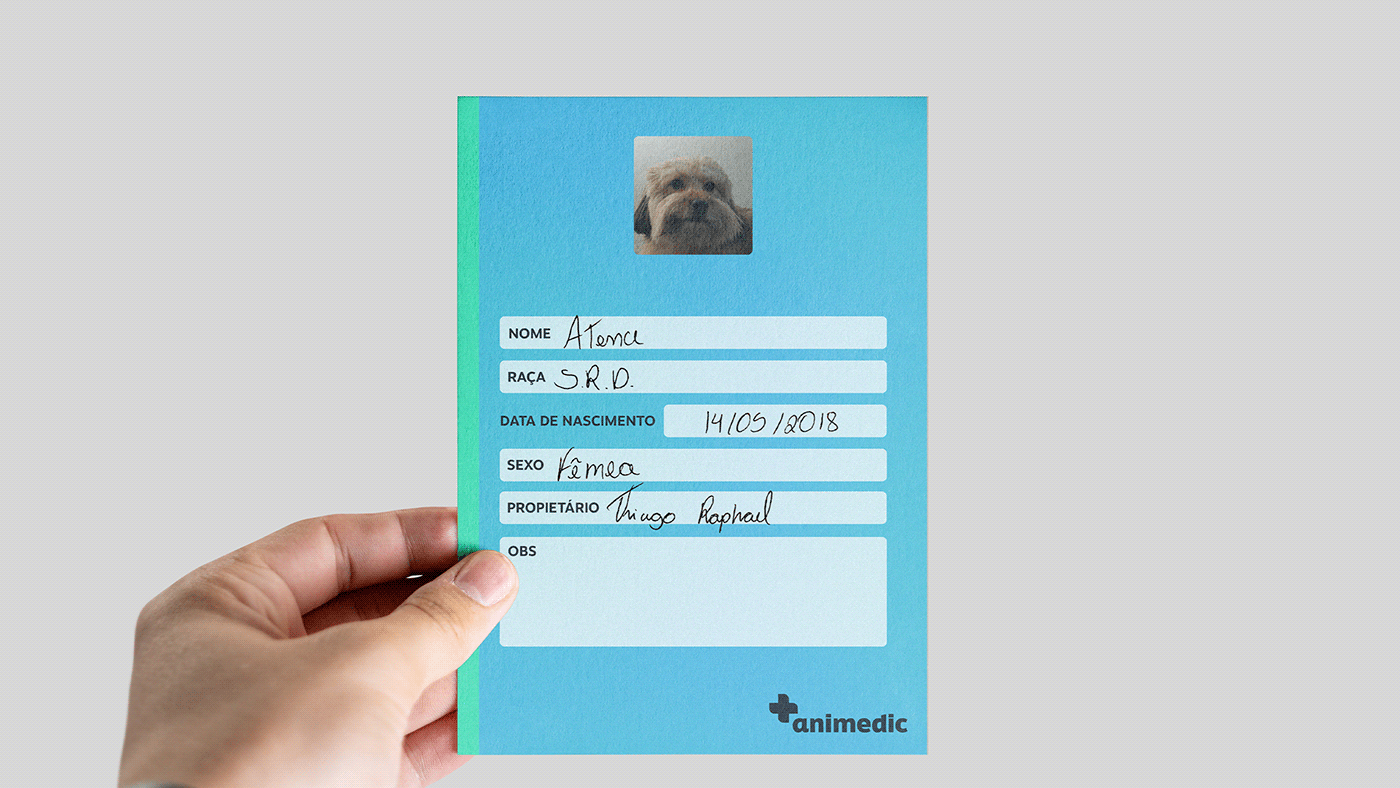 NOME Atena
RAÇA S.R.D.
DATA DE NASCIMENTO 14/05/2018
SEXO Fêmea
PROPIETÁRIO Thiago Raphael
OBS
animedic